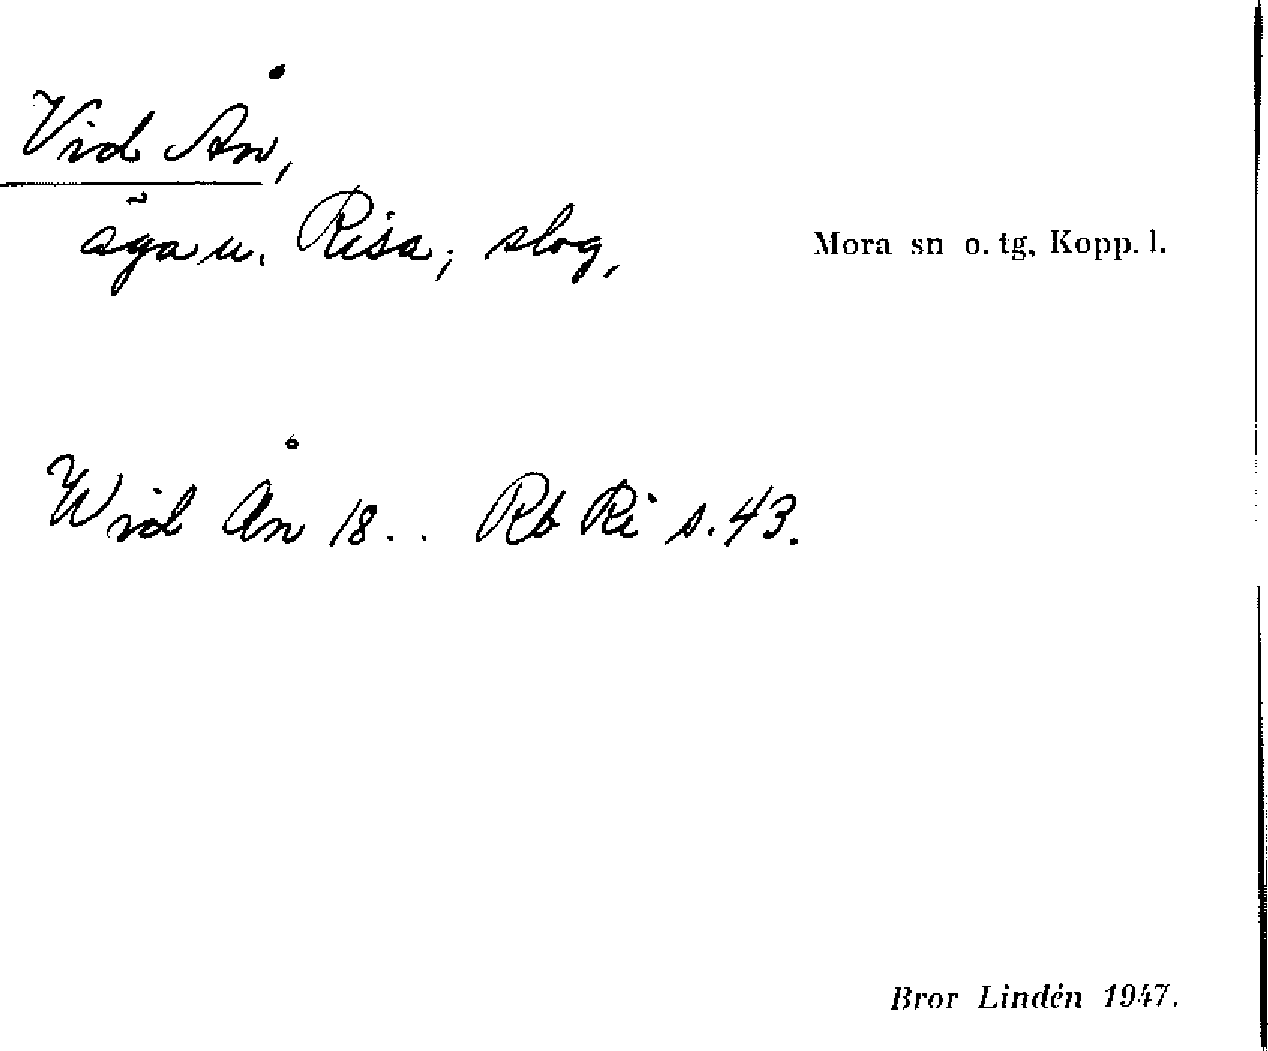 Vid Ån,
äga u. Risa, slog, Mora sn o. tg, Kopp. l.
Wid Ån 18.. Rb Ri s. 43.
Bror Lindén 1947.